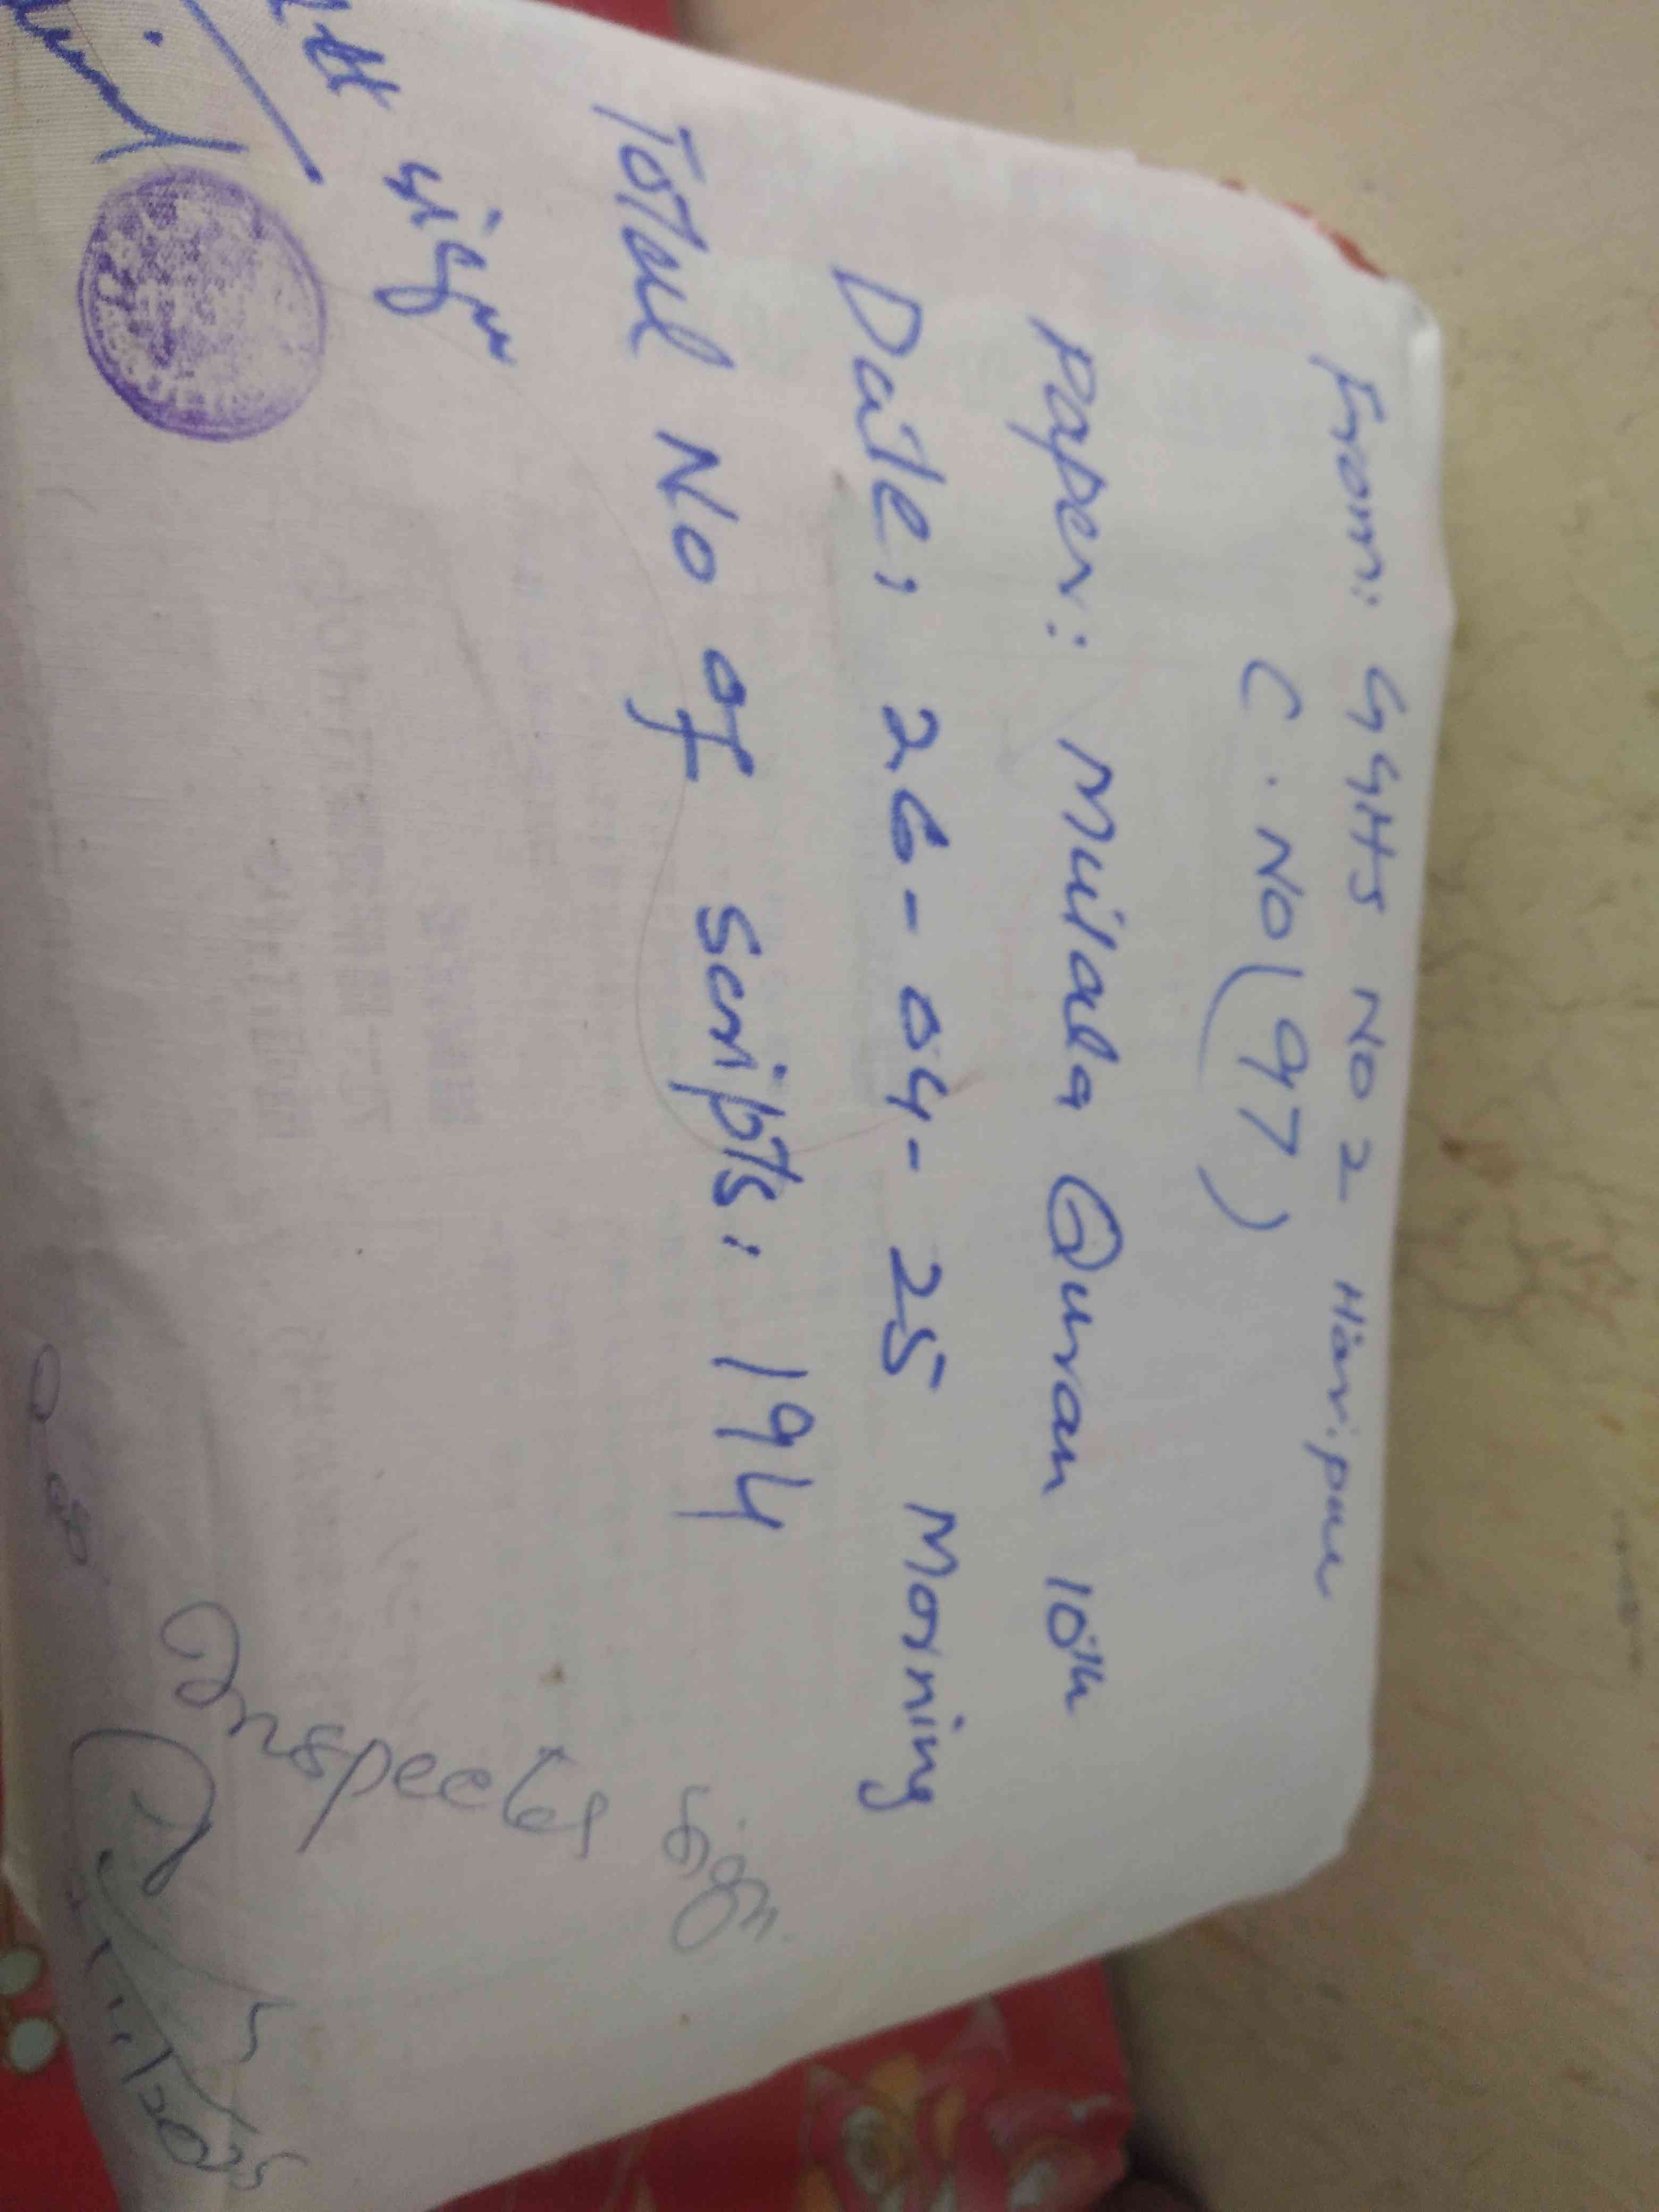 From: GGHS No 2 Haripur
(C.No (97)
Paper: Mutala Quran 10th
Date: 26-04-25 Morning
Total No of scripts: 194
sign
Inspector Sign